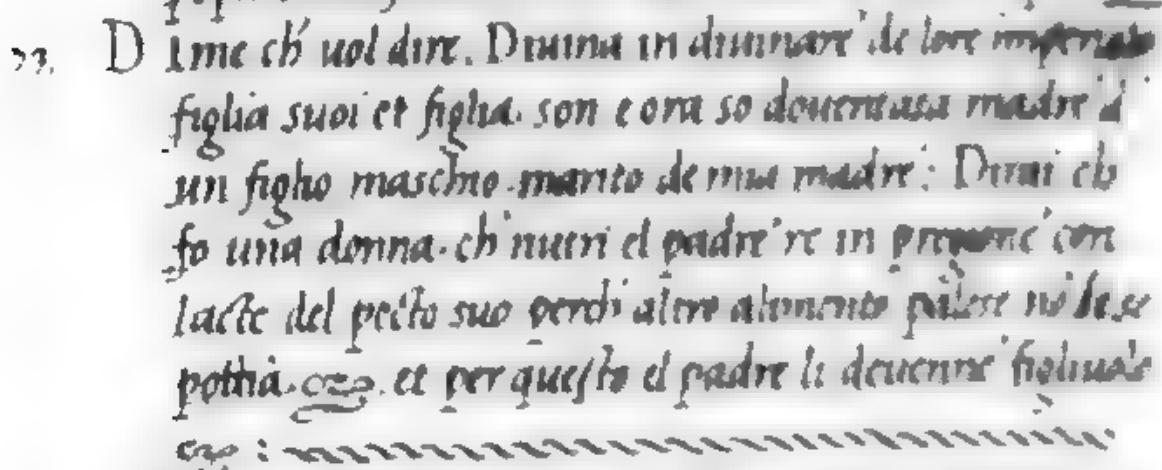 33. DIme ch' uol dire. Diuina in diuinare' de lore
figlia suoi et figlia. son e ora so douentata madre' d
un figlio maschio. marito de mia madre': Diuai ch
fo una donna. ch' nutri el padre' re in presone' con
lacte del pecto suo perch' altro alimento palese nō se se
pothia. et per questo el padre li deuenne' figliuolo